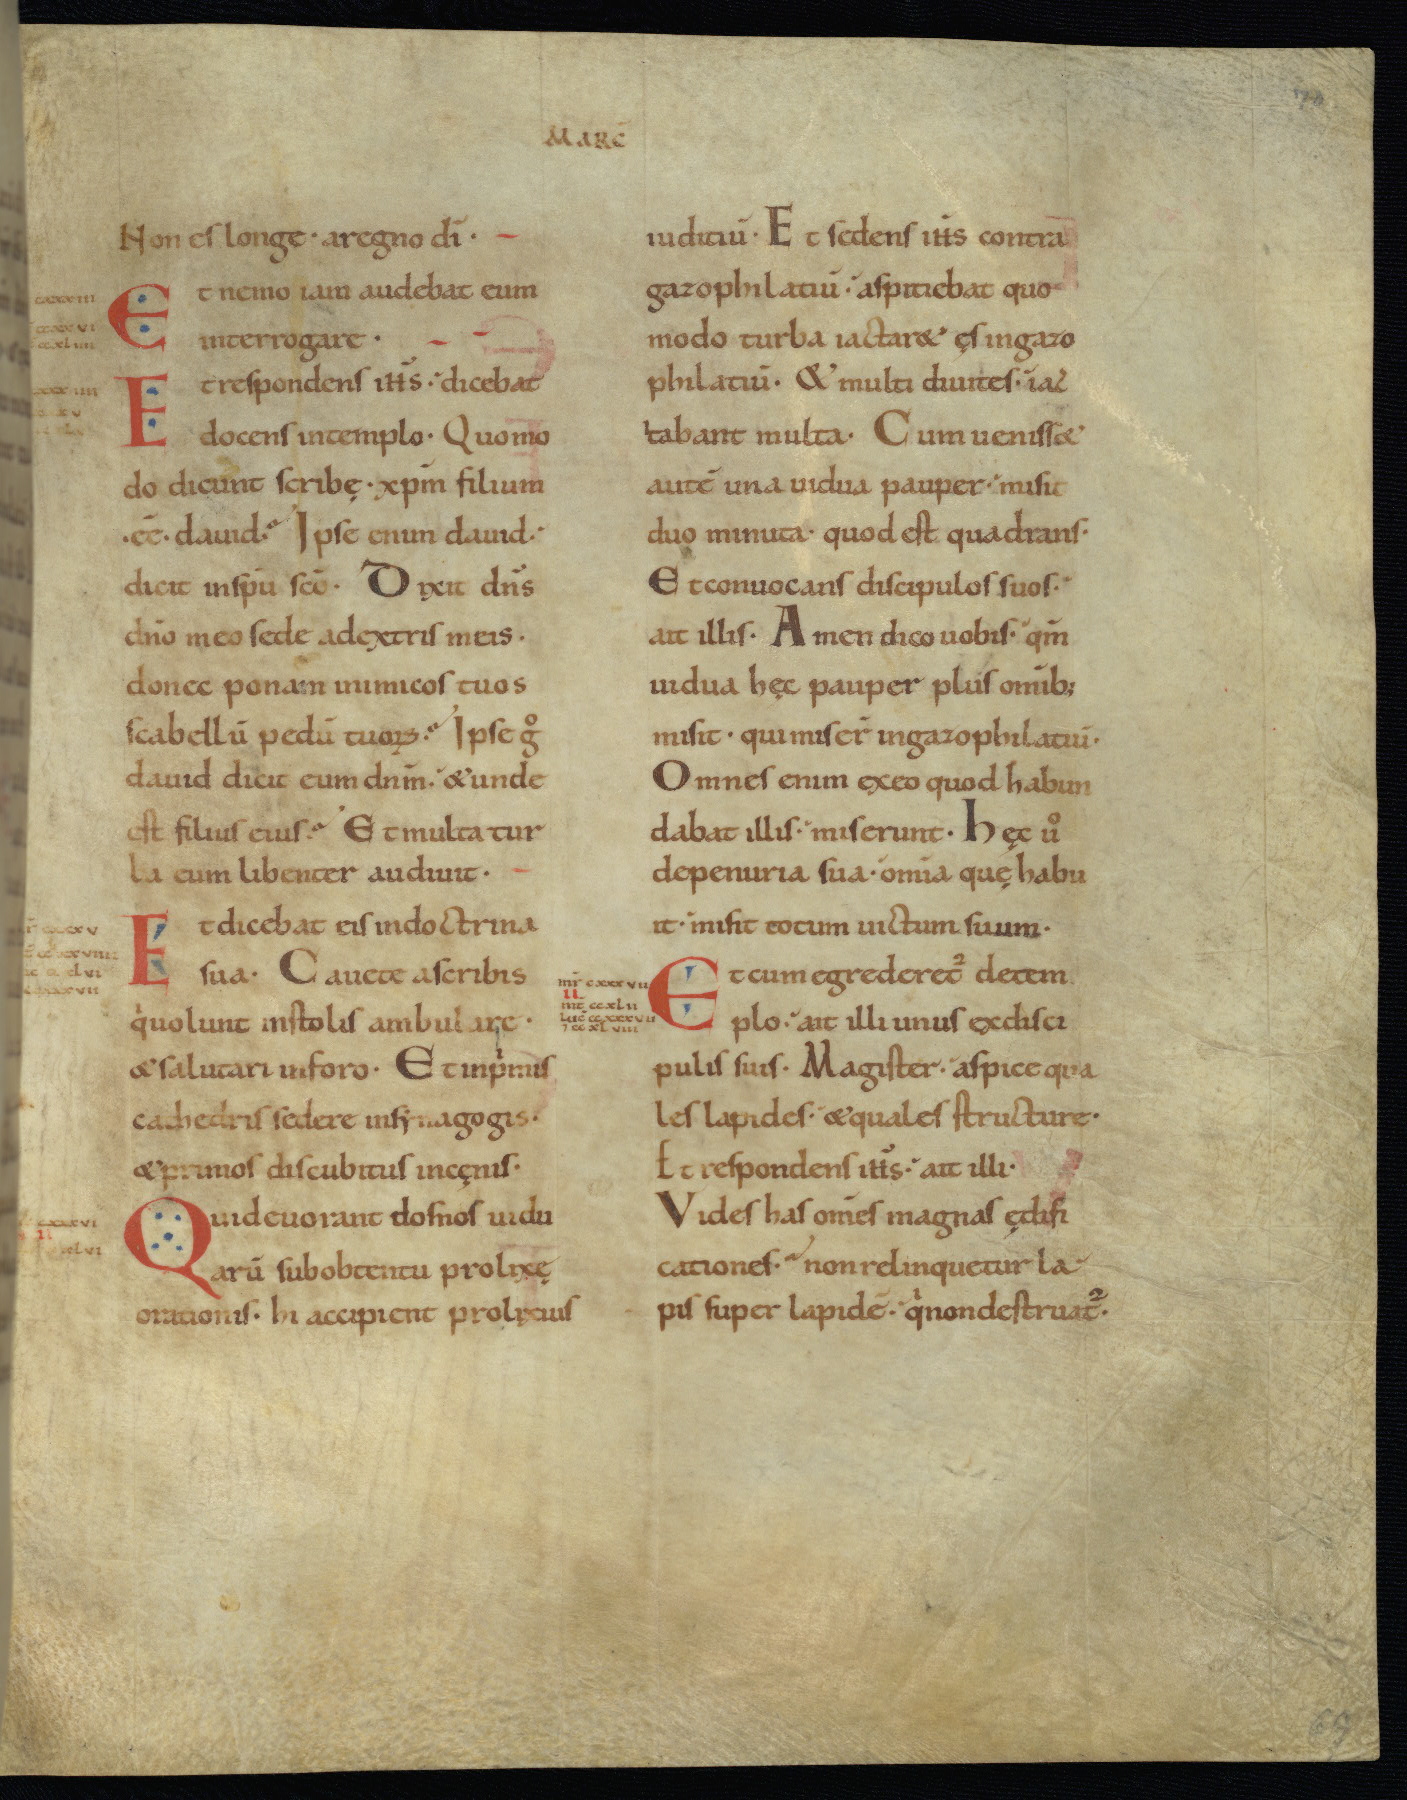 MARC̄
Non es longe · aregno dī ·
Et nemo iam audebat eum
interrogare ·
Et respondens ih̄s · dicebat
docens intemplo · Quomo
do dicunt scribę · xp̄m filium
· eē · dauid · Ipse enim dauid ·
dicit insp̄u scō · Dixit dn̄s
dn̄o meo sede adextris meis ·
donec ponam inimicos tuos
scabellū pedū tuoꝝ · Ipse gͦ
dauid dicit eum dn̄m · &unde
est filius eius · Et multa tur
ba eum libenter audiuit ·
Et dicebat eis indoctrina
sua · Cauete ascribis
qͥuolunt instolis ambulare ·
&salutari inforo · Et inpͥmis
cathedris sedere insynagogis ·
&primos discubitus incęnis ·
Qui deuorant domos uidu
arū subobtentu prolixę
orationis · hi accipient prolixius
iuditiū · Et sedens ih̄s contra
gazophilatiū · aspitiebat quo
modo turba iactar& ęs ingazo
philatiū · & multi diuites · iac
tabant multa · Cum ueniss&
autē una uidua pauper · misit
duo minuta · quod est quadrans ·
Et conuocans discipulos suos ·
ait illis · Amen dico uobis · qm̄
uidua hęc pauper plus omīb;
misit · qui miser̄ ingazophilatiū ·
Omnes enim exeo quod habun
dabat illis · miserunt · Hęc uͦ
depenuria sua · om̄ia quę habu
it · misit totum uictum suum ·
mr̄ cxxxvii
II
mt̄ ccxlii
luc̄ ccxxxvii
7 ccxlviii
Et cum egrederet᷑ detem
plo · ait illi unus exdisci
pulis suis · Magister · aspice qua
les lapides · &quales structure ·
Et respondens ih̄s · ait illi ·
Vides has om̄es magnas ędifi
cationes · non relinquetur la
pis super lapidē · qͥnondestruat᷑ ·
69